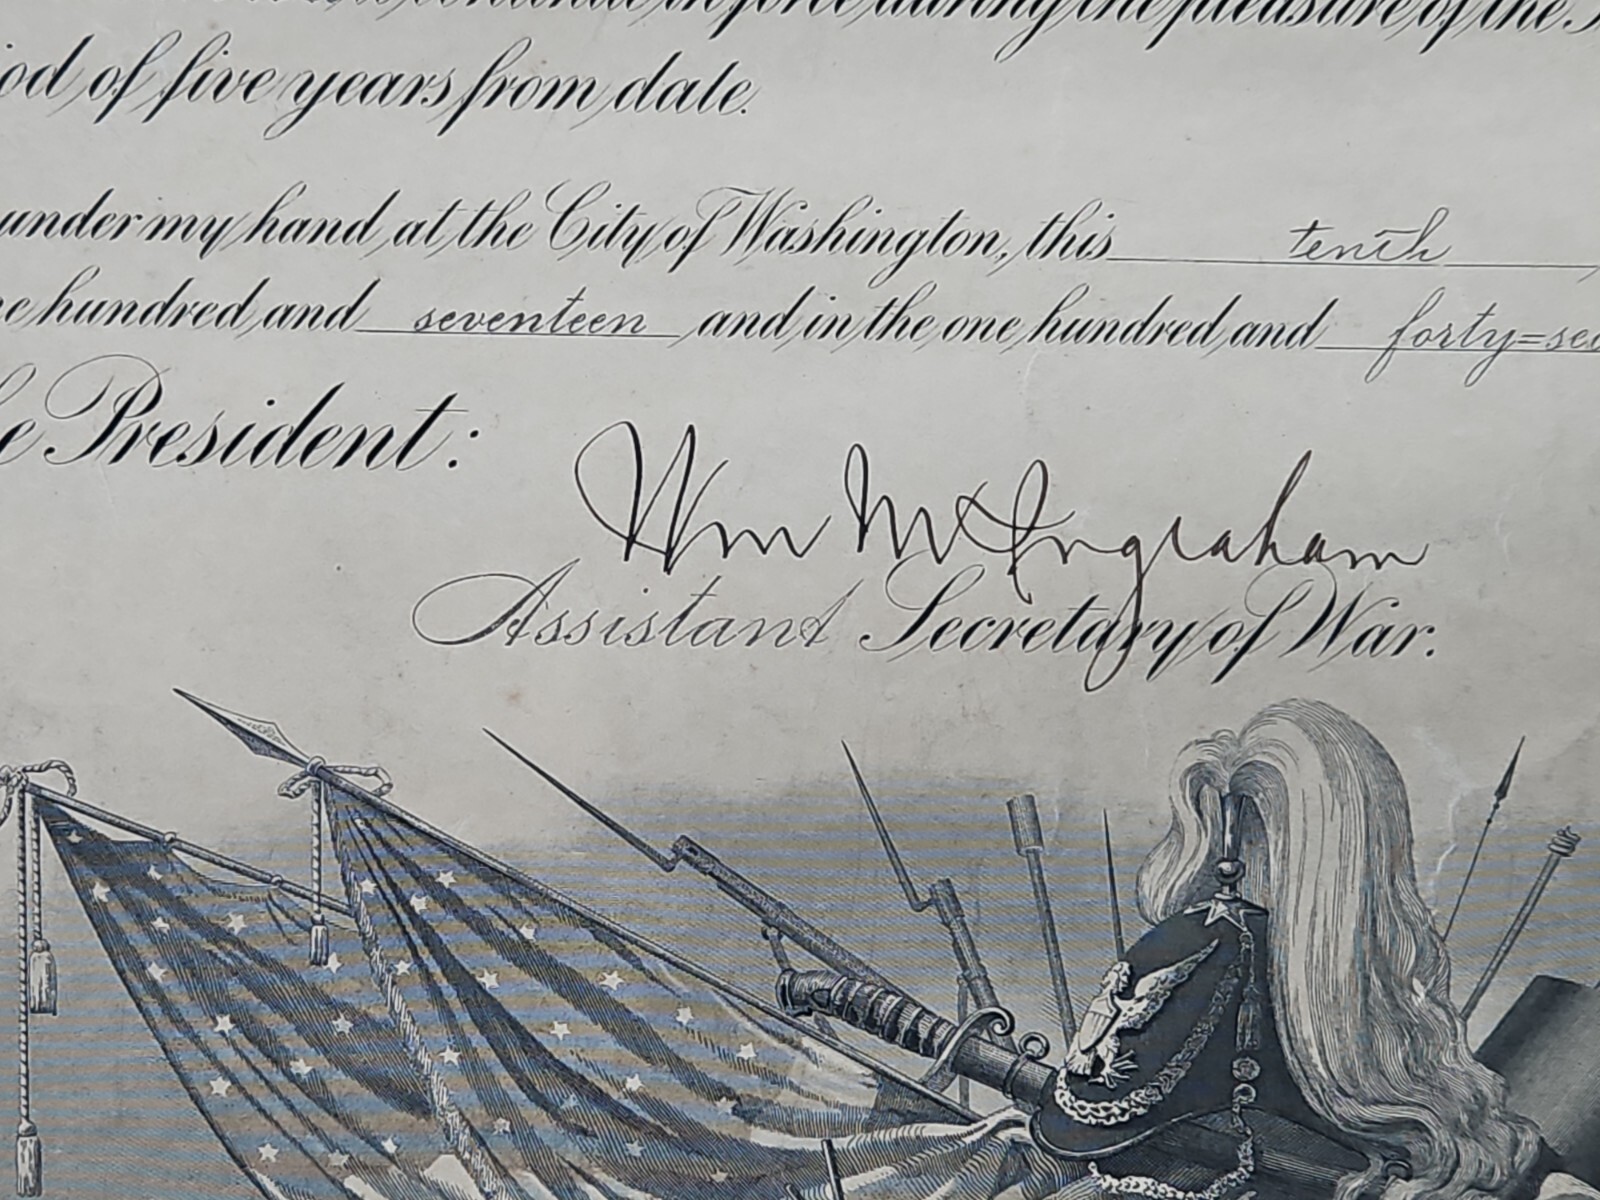 continue in force during the pleasure of the
of five years from date.
under my hand at the City of Washington, this tenth
hundred and seventeen and in the one hundred and forty=
President:
Wm M Ingraham
Assistant Secretary of War.